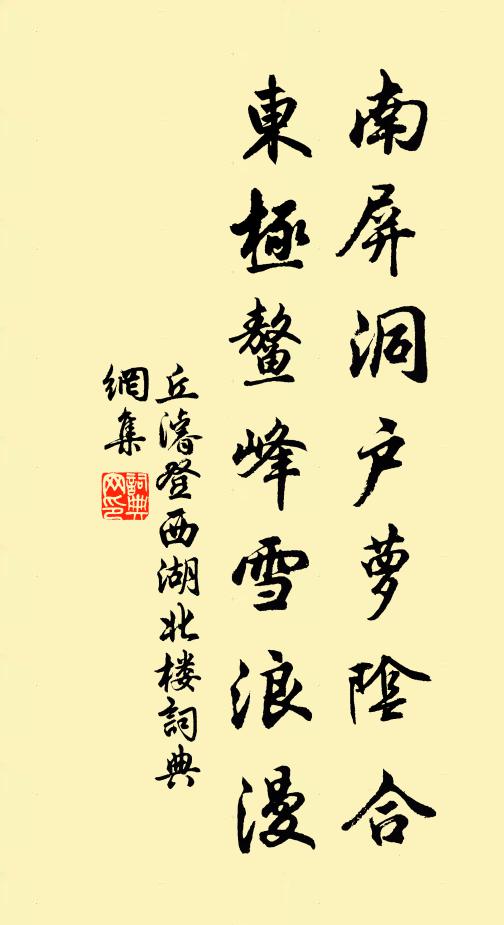 南屏洞户萝陰合
東極鰲峰雪浪漫
丘濬登西湖北楼詞典
網集
詞典
网印